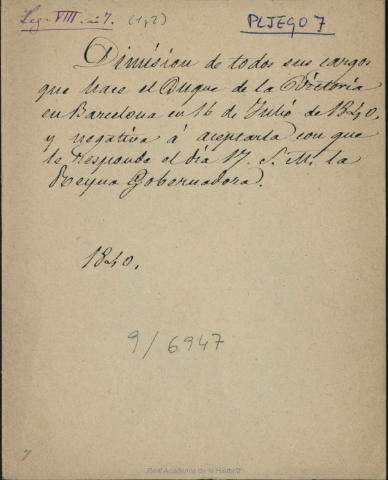 Leg. VIII. nº 7. (1 y 2)
PLJEGO 7
Dimision de todos sus cargos
que hace el Duque de la Victoria
en Barcelona en 16 de Julio de 1840,
y negativa á aceptarla con que
le responde el dia 17. S. M. la
Reyna Gobernadora.
1840.
9/6947
7
Real Academia de la Historia